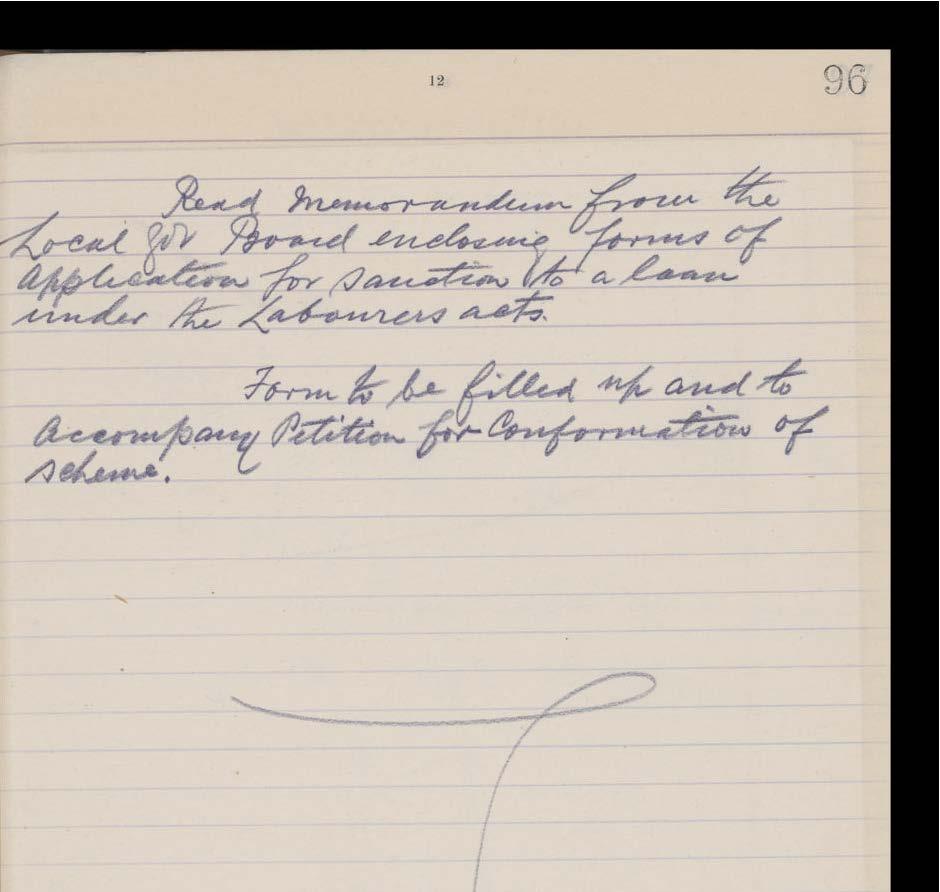 12
96
Read Memorandum from the
Local Gov Board enclosing forms of
Application for sanction to a loan
under the Labourers acts.
Form to be filled up and to
Accompany Petition for Conformation of
scheme.